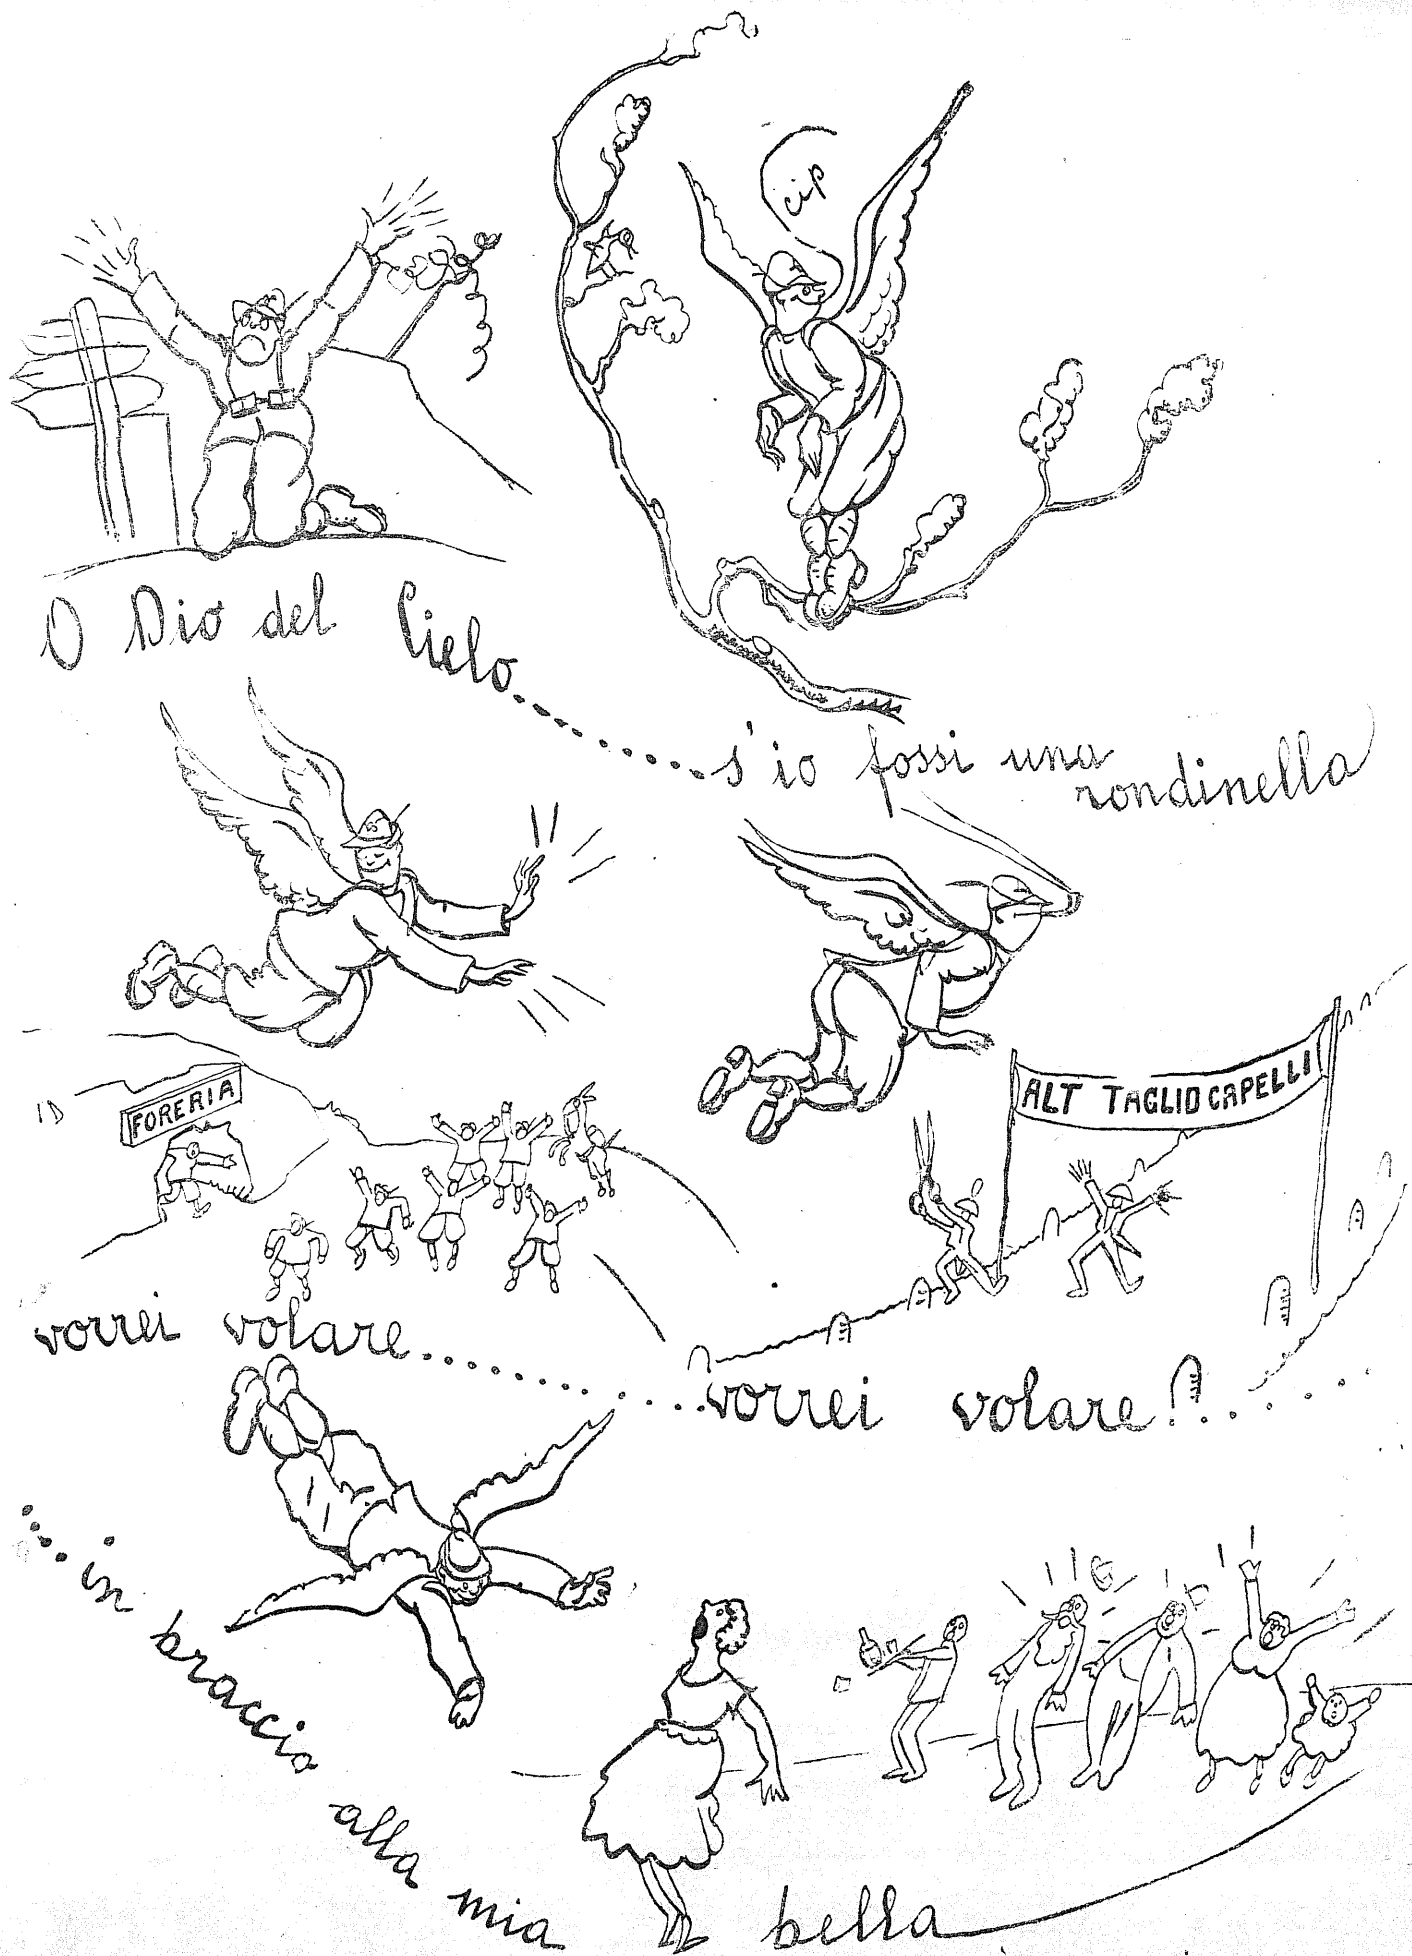 cip
O Dio del Cielo........
s'io fossi una
rondinella
FORERIA
ALT TAGLIO CAPELLI
vorrei volare...........
...vorrei volare!?......
....in braccio
alla mia bella